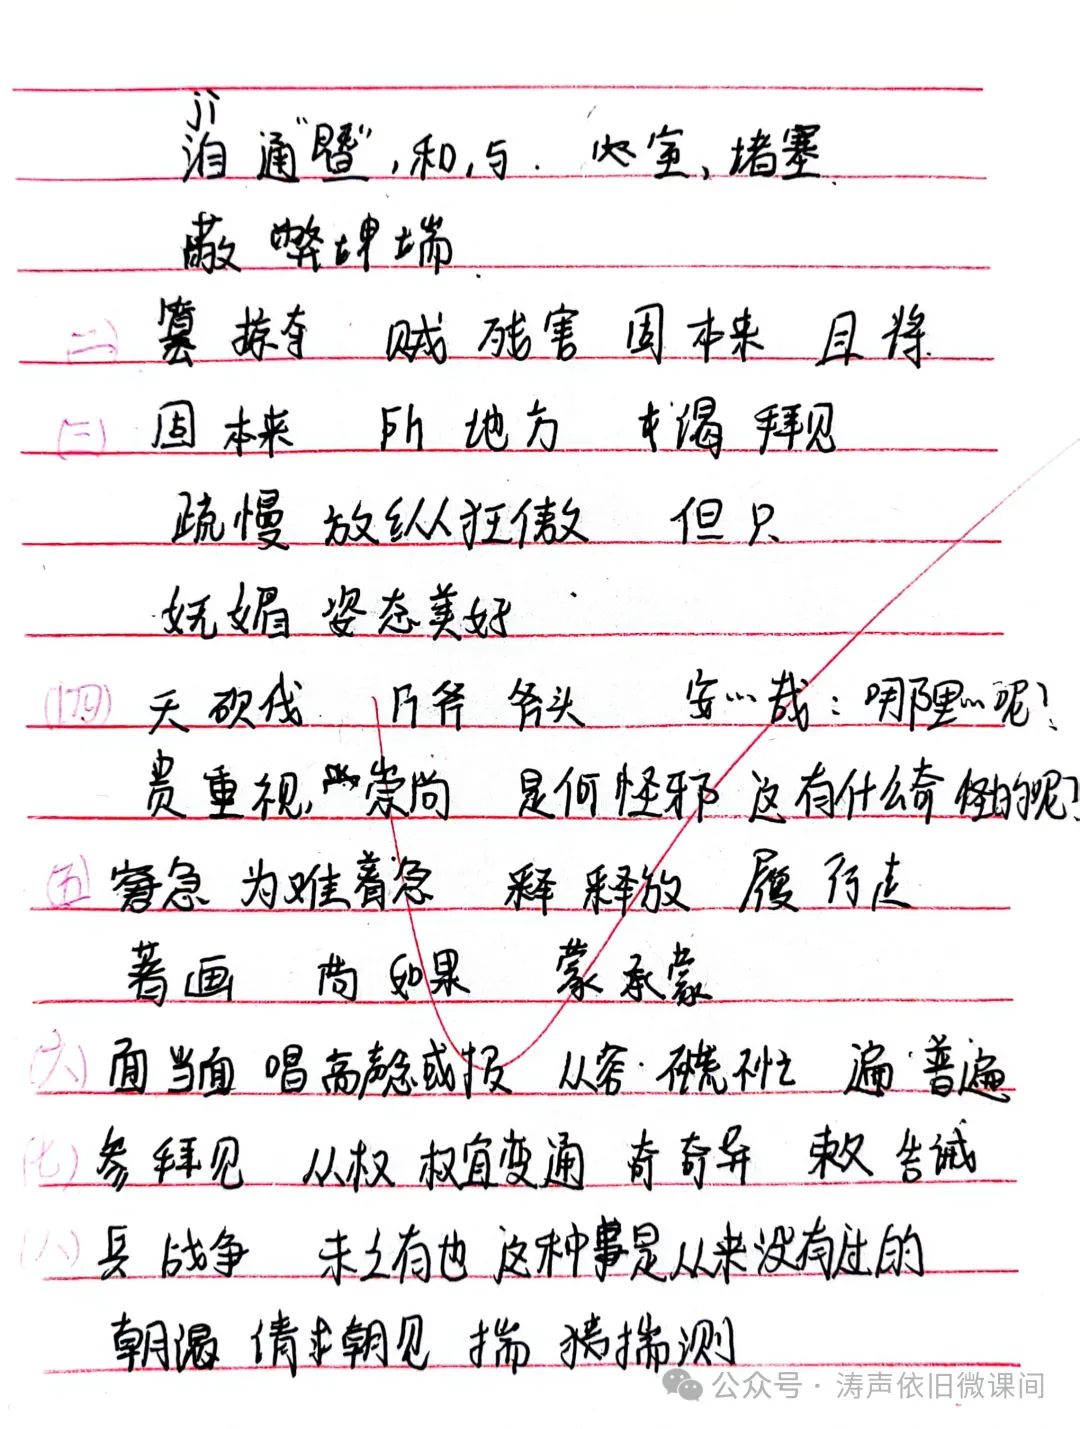 jì
洎 通“暨”,和,与. 室,堵塞.
蔽 弊 端.
(二) 篡 掠夺 贼 残害 固 本来 且 将.
(三) 固 本来 所 地方 求谒 拜见
疏慢 放纵狂傲 但 只
妩媚 姿态美好
(四) 夭 砍伐 斤斧 斧头 安…哉:哪里…呢?
贵 重视,崇尚 是何怪邪 这有什么奇怪的呢?
(五) 窘急 为难着急 释 释放 履 行走
著 画 尚 如果 蒙 承蒙
(六) 面 当面 唱 高声念或报 从容·不慌不忙 遍·普遍
(七) 参 拜见 从权 权宜变通 奇 奇异 敕 告诫
(八) 兵 战争 未之有也 这种事是从来没有过的
朝谒 请求朝见 揣 猜揣测
公众号·涛声依旧微课间